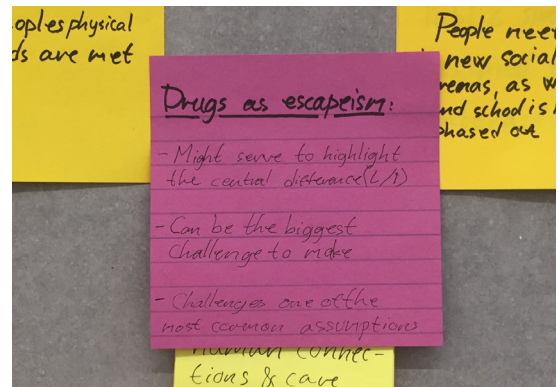 oples physical
ds are met
People nee
new social
renas, as w
nd school is
phased out
Drugs as escapeism:
- Might serve to highlight
the central difference (L/1)
- Can be the biggest
challenge to make
- Challenges one of the
most common assumptions
human connec-
tions & care